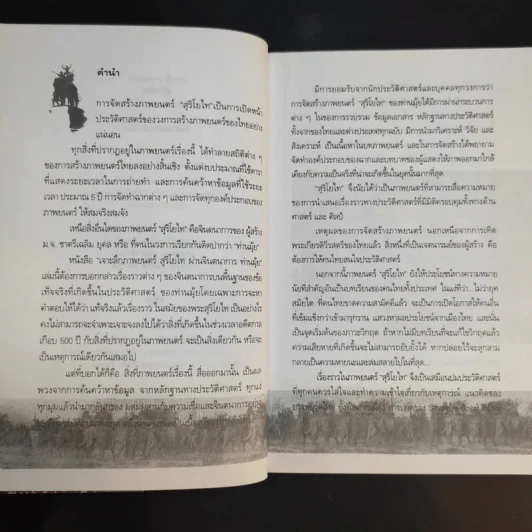 คำนำ
การจัดสร้างภาพยนตร์ "สุริโยไท" เป็นการเปิดหน้า
ประวัติศาสตร์ของวงการสร้างภาพยนตร์ของไทยอย่าง
แน่นอน
ทุกสิ่งที่ปรากฏอยู่ในภาพยนตร์เรื่องนี้ ได้ทำลายสถิติต่าง ๆ
ของการสร้างภาพยนตร์ไทยลงอย่างสิ้นเชิง ตั้งแต่งบประมาณที่ใช้
ที่แสดงระยะเวลาในการถ่ายทำ และการค้นคว้าหาข้อมูลที่ใช้ระยะ
เวลา ประมาณ 5 ปี การจัดทำฉากต่าง ๆ และการจัดทุกองค์ประกอบของ
ภาพยนตร์ ให้สมจริงสมจัง
เหนือสิ่งอื่นใดของภาพยนตร์ "สุริโยไท" คือจินตนาการของ ผู้สร้าง
ม.จ. ชาตรีเฉลิม ยุคล หรือ ที่คนในวงการเรียกกันติดปากว่า "ท่านมุ้ย"
หนังสือ "เจาะลึกภาพยนตร์ สุริโยไท ผ่านจินตนาการ ท่านมุ้ย"
เล่มนี้ต้องการบอกกล่าวเรื่องราวต่าง ๆ ของจินตนาการบนพื้นฐานของข้อ
เท็จจริงที่เกิดขึ้นในประวัติศาสตร์ ของท่านมุ้ยโดยเฉพาะการจะหา
คำตอบให้ได้ว่า แท้จริงแล้วเรื่องราว ในสมัยของพระสุริโยไท เป็นอย่างไร
คงไม่สามารถจะจำเพาะเจาะจงลงไปได้ว่าสิ่งที่เกิดขึ้นในช่วงเวลาอดีตกาล
เกือบ 500 ปี กับสิ่งที่ปรากฏอยู่ในภาพยนตร์ จะเป็นสิ่งเดียวกัน หรือจะ
เป็นเหตุการณ์เดียวกันเสมอไป
แต่ที่บอกได้ก็คือ สิ่งที่ภาพยนตร์เรื่องนี้ สื่อออกมานั้น เป็นผล
พวงจากการค้นคว้าหาข้อมูล จากหลักฐานทางประวัติศาสตร์ ทุกแง่
ทุกมุมแล้วนำมากลั่นกรอง ผสมผสานกับความเชื่อและจินตนาการ
มีการยอมรับจากนักประวัติศาสตร์และบุคคลทุกวงการว่า
การจัดสร้างภาพยนตร์ "สุริโยไท" ของท่านมุ้ยได้มีการผ่านกระบวนการ
ต่าง ๆ ในของการรวบรวม ข้อมูลเอกสาร หลักฐานทางประวัติศาสตร์
ทั้งจากของไทยและต่างประเทศทุกฉบับ มีการนำมาวิเคราะห์ วิจัย และ
สังเคราะห์ เป็นเนื้อหาในบทภาพยนตร์ และในการสร้างได้พยายาม
จัดทำองค์ประกอบของฉากและบทบาทของผู้แสดงให้ภาพออกมาใกล้
เคียงกับความเป็นจริงที่น่าจะเกิดขึ้นในยุคนั้นมากที่สุด
"สุริโยไท" จึงนับได้ว่าเป็นภาพยนตร์ที่สามารถสื่อความหมาย
ของการนำเสนอเรื่องราวทางประวัติศาสตร์ที่มีมิติครอบคลุมทั้งทางด้าน
ศาสตร์ และ ศิลป์
เหตุผลของการจัดสร้างภาพยนตร์ นอกเหนือจากการเทิด
พระเกียรติวีรสตรีของไทยแล้ว สิ่งหนึ่งที่เป็นเจตนารมณ์ของผู้สร้าง คือ
ต้องการให้คนไทยสนใจประวัติศาสตร์
นอกจากนี้ภาพยนตร์ "สุริโยไท" ยังให้ประโยชน์ทางความหมาย
นัยที่สำคัญอันเป็นบทเรียนของคนไทยทั้งประเทศ ในแง่ที่ว่า..ไม่ว่ายุค
สมัยใด ที่คนไทยขาดความสามัคคีแล้ว จะเป็นการเปิดโอกาสให้คนอื่น
ที่เข้มแข็งกว่าเข้ามารุกราน แสวงหาผลประโยชน์จากเมืองไทย และนั่น
เป็นจุดเริ่มต้นของภาวะวิกฤต ถ้าหากไม่มีบทเรียนที่จะแก้ไขวิกฤตแล้ว
ความเสียหายที่เกิดขึ้นจะไม่สามารถยับยั้งได้ หากปล่อยไว้จะลุกลาม
กลายเป็นความหายนะและล่มสลายไปในที่สุด...
เรื่องราวในภาพยนตร์ "สุริโยไท" จึงเป็นเสมือนปมประวัติศาสตร์
ที่ทุกคนควรใส่ใจและทำความเข้าใจเกี่ยวกับเหตุการณ์ แนวคิดของ